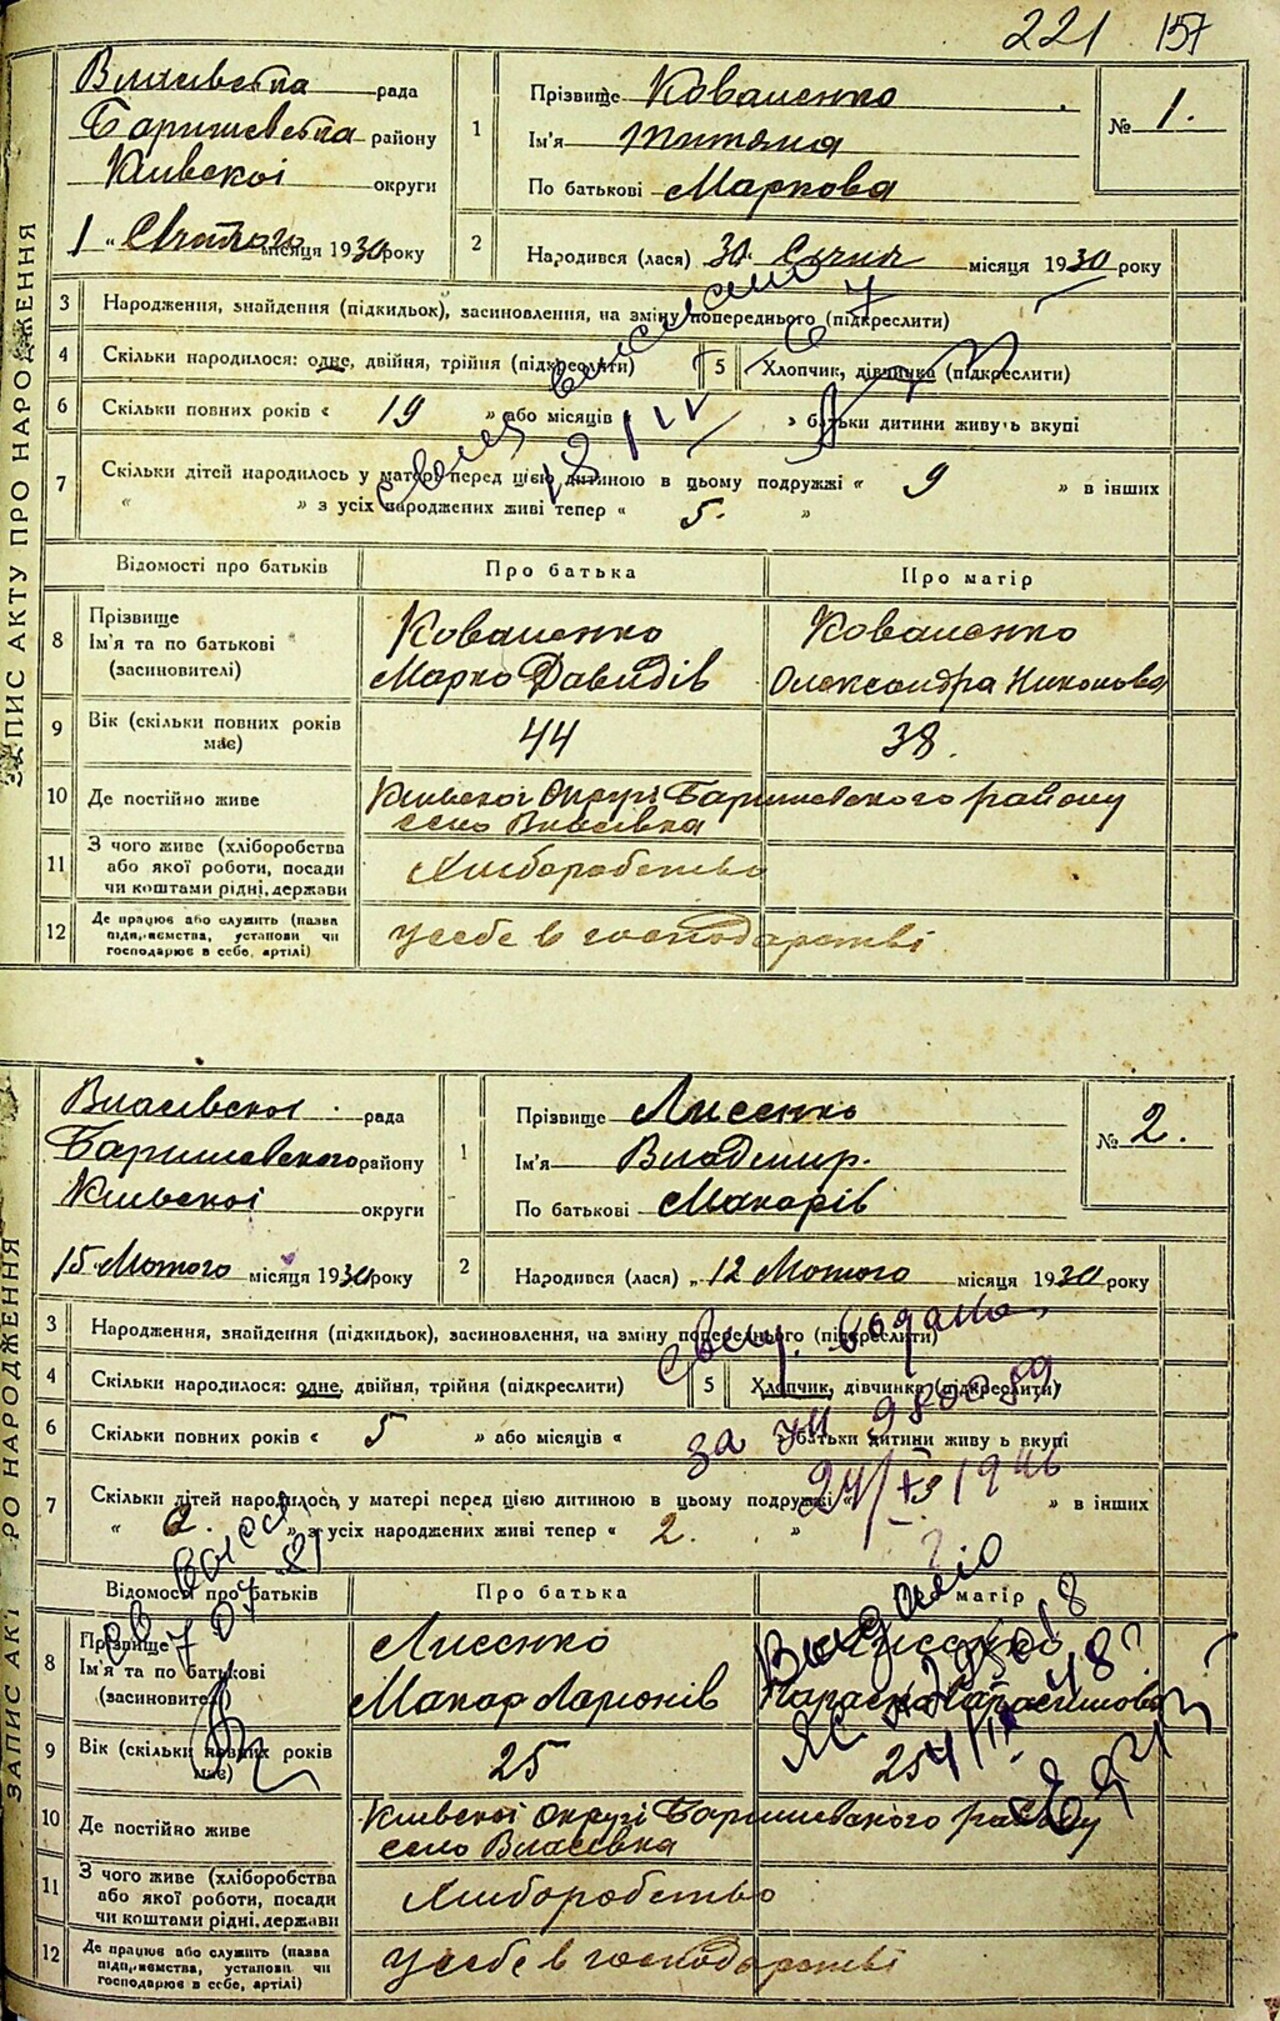 221 157
ЗАПИС АКТУ ПРО НАРОДЖЕННЯ
Власівська рада
Баришевська району
Київскої округи
1 " місяця 1930 року
1 Прізвище Коваленко
Ім'я Титяна
По батькові Маркова
№ 1.
2 Народився (лася) 30 Січня місяця 1930 року
3 Народження, знайдення (підкидьок), засиновлення, на зміну попереднього (підкреслити)
4 Скільки народилося: одне, двійня, трійня (підкреслити) 5 Хлопчик, дівчинка (підкреслити)
6 Скільки повних років « 19 » або місяців « » батьки дитини живуть вкупі
7 Скільки дітей народилось у матері перед цією дитиною в цьому подружжі « 9 » в інших
« » з усіх народжених живі тепер « 5. »
Відомості про батьків Про батька Про матір
8 Прізвище Коваленко Коваленко
Ім'я та по батькові Марко Давидів Олександра Никонова
(засиновителі)
9 Вік (скільки повних років має) 44 38.
10 Де постійно живе Київскої Округі Баришевского району
село Власівка
11 З чого живе (хліборобства Хліборобство
або якої роботи, посади
чи коштами рідні, держави
12 Де працює або служить (назва у себе в господарстві
підприємства, установи чи
господарює в себе, артілі)
ЗАПИС АКТУ ПРО НАРОДЖЕННЯ
Власівскої рада
Баришевского району
Київскої округи
15 Лютого місяця 1930 року
1 Прізвище Лисенко
Ім'я Владимир.
По батькові Макарів
№ 2.
2 Народився (лася) „ 12 Лютого місяця 1930 року
3 Народження, знайдення (підкидьок), засиновлення, на зміну попереднього (підкреслити)
4 Скільки народилося: одне, двійня, трійня (підкреслити) 5 Хлопчик, дівчинка (підкреслити)
6 Скільки повних років « 5 » або місяців « » батьки дитини живуть вкупі
7 Скільки дітей народилось у матері перед цією дитиною в цьому подружжі « » в інших
« 2. » з усіх народжених живі тепер « 2. »
Відомості про батьків Про батька Про матір
8 Прізвище Лисенко Лисенко
Ім'я та по батькові Макар Ларионів Параска
(засиновителі)
9 Вік (скільки повних років має) 25 25
10 Де постійно живе Київскої Округі Баришевского району
село Власівка
11 З чого живе (хліборобства Хліборобство
або якої роботи, посади
чи коштами рідні, держави
12 Де працює або служить (назва у себе в господарстві
підприємства, установи чи
господарює в себе, артілі)